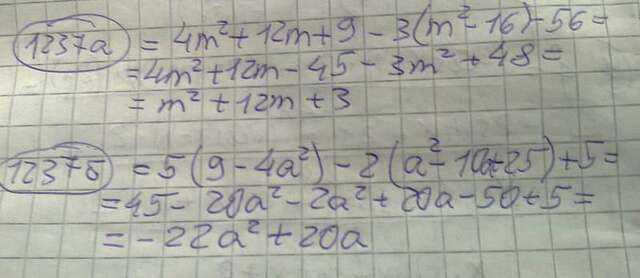 1237а = 4m² + 12m + 9 - 3(m² - 16) - 56 =
= 4m² + 12m - 45 - 3m² + 48 =
= m² + 12m + 3
1237б = 5(9 - 4a²) - 2(a² - 10a + 25) + 5 =
= 45 - 20a² - 2a² + 20a - 50 + 5 =
= -22a² + 20a